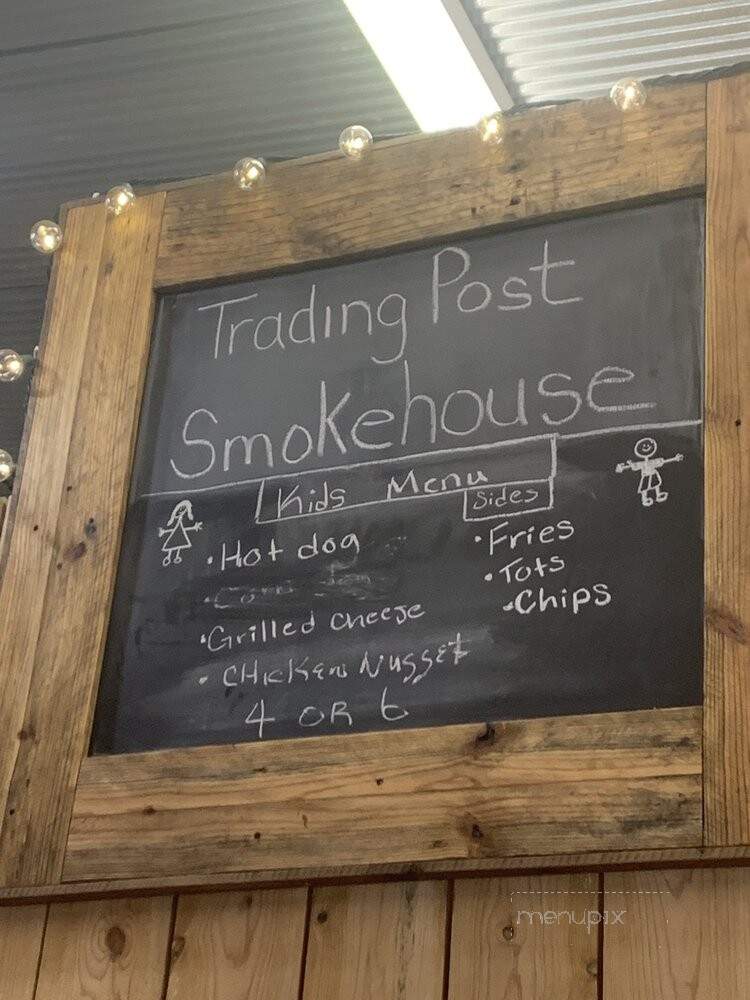 Trading Post
Smokehouse
Kids Menu
• Hot dog
• Grilled cheese
• CHicKen Nugget
4 OR 6
Sides
• Fries
• Tots
• Chips
menupix